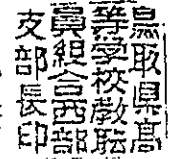 鳥取県高
等学校教職
員組合西部
支部長印